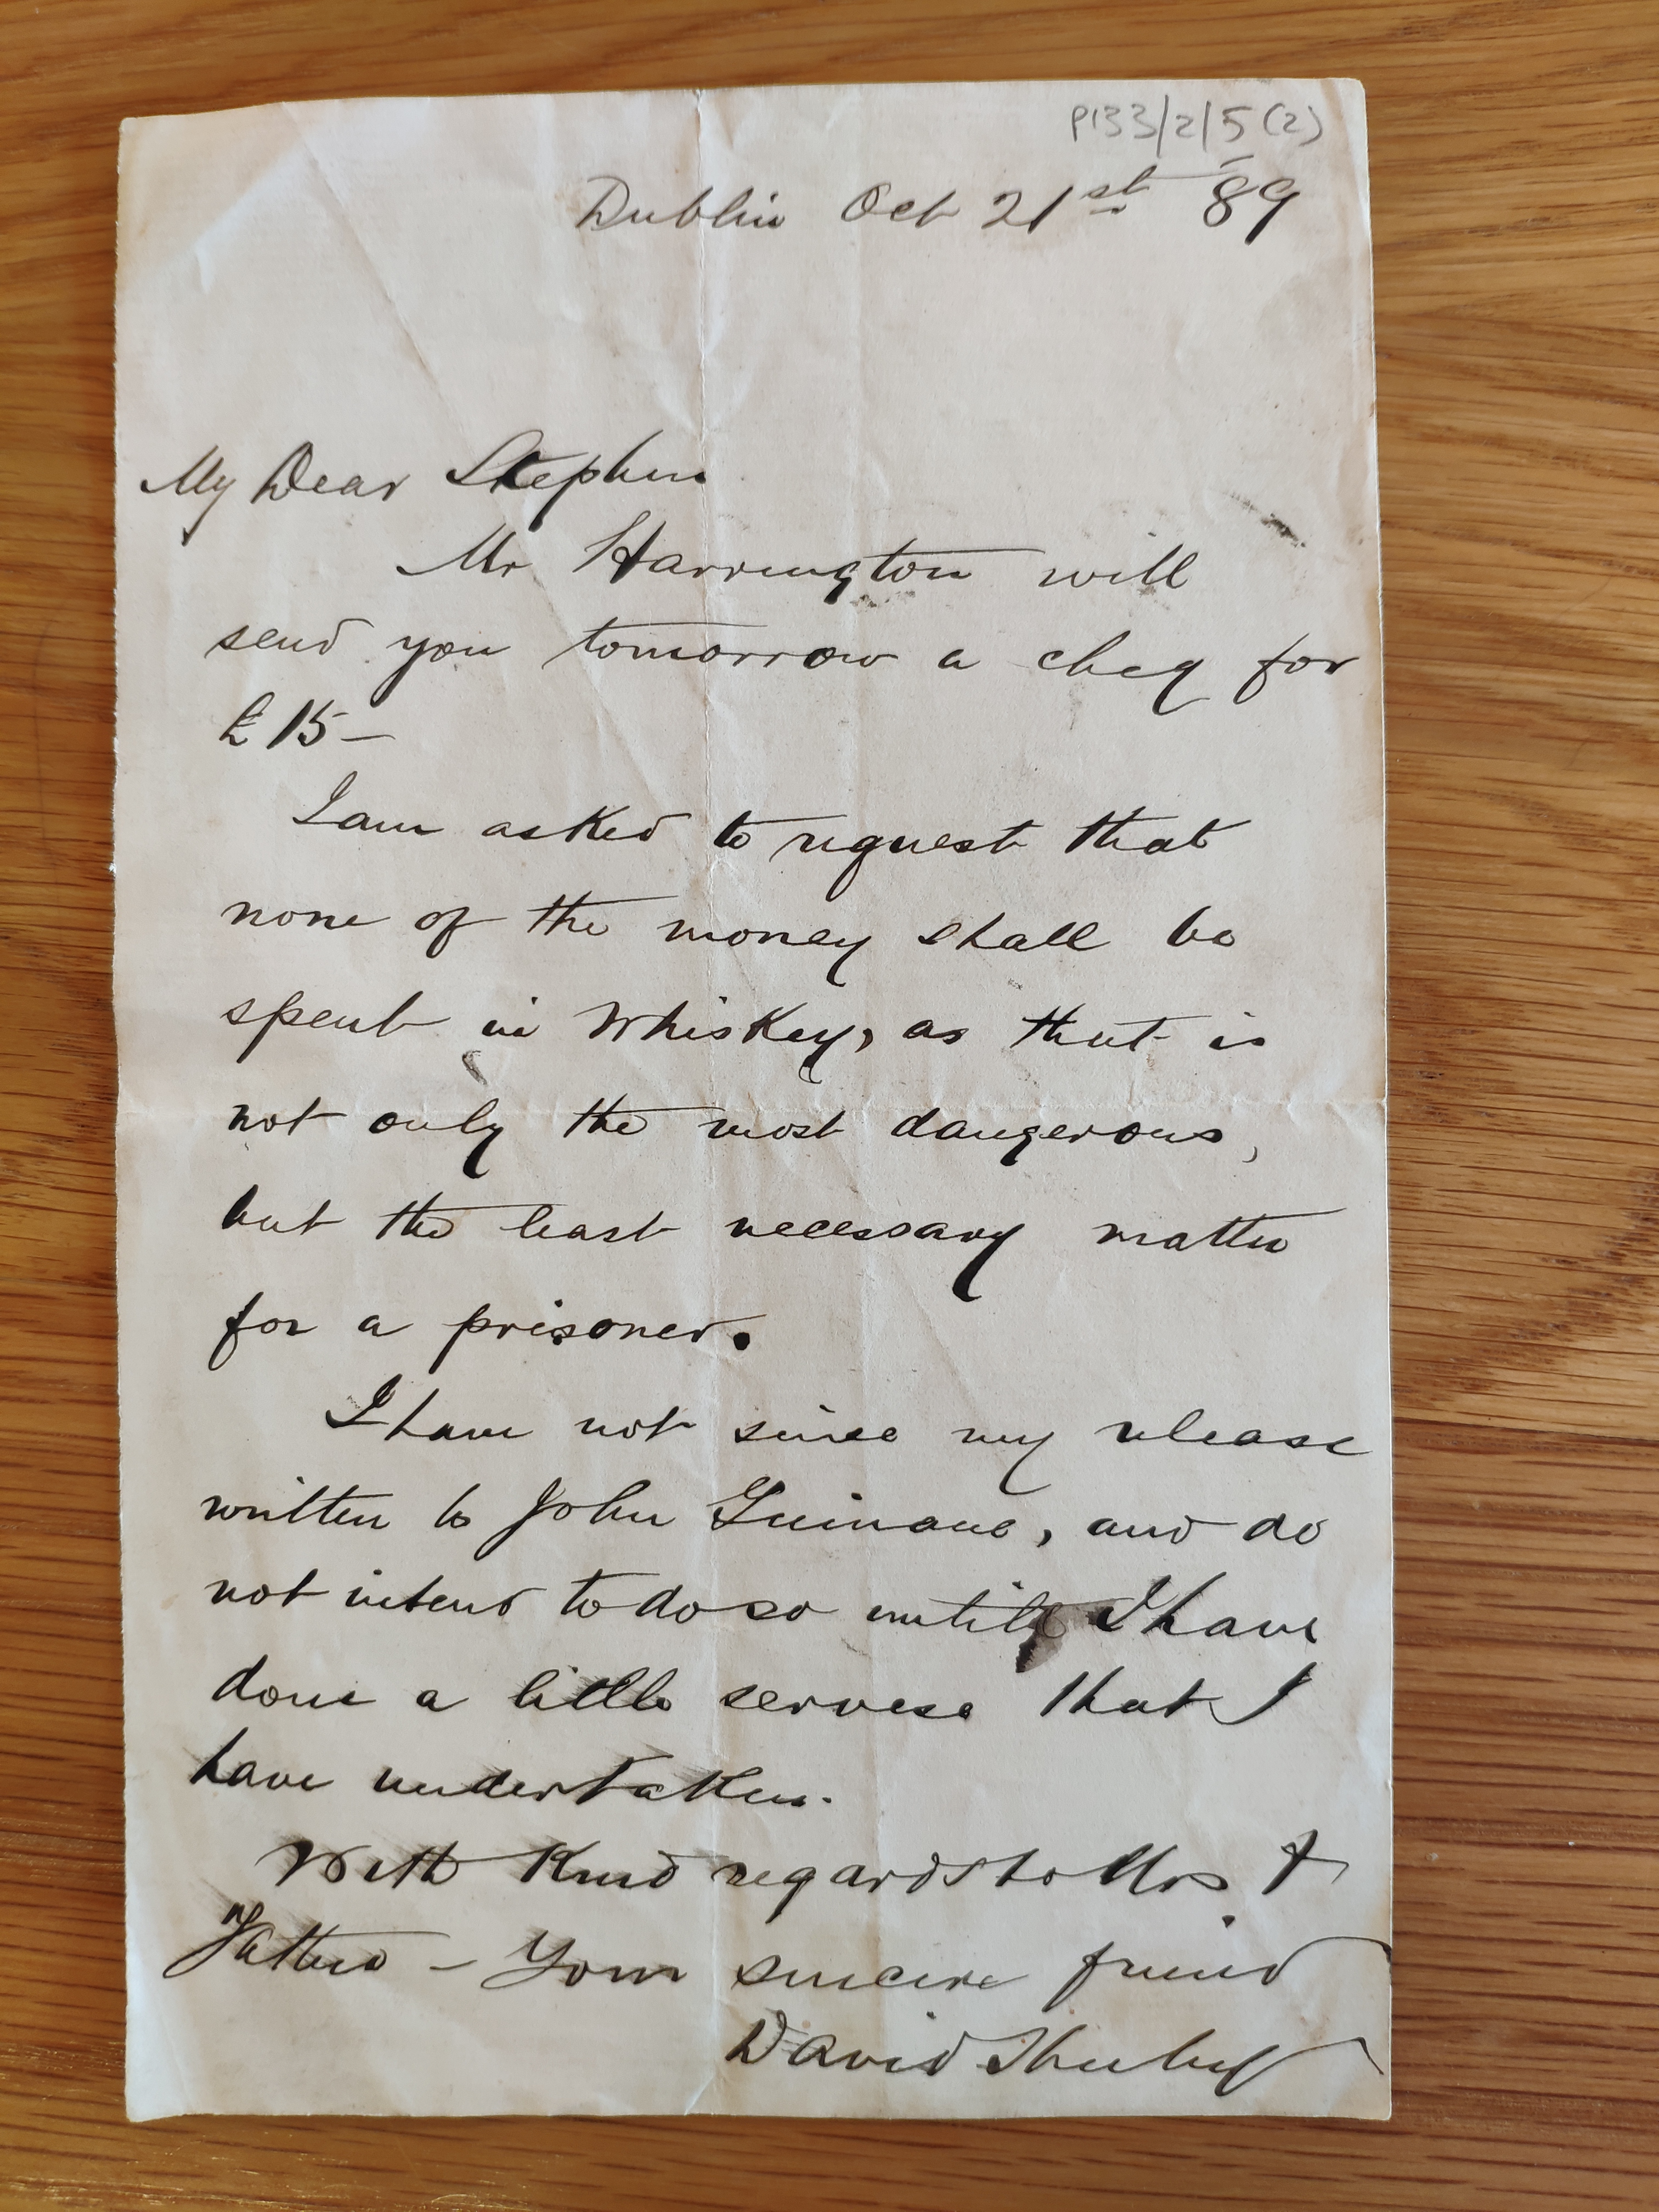 P133/2/5(2)
Dublin Oct 21st 89
My Dear Stephen
Mr Harrington will
send you tomorrow a cheq for
£15-
I am asked to request that
none of the money shall be
spent in Whiskey, as that is
not only the most dangerous,
but the least necessary matter
for a prisoner.
I have not since my release
written to John Guinane, and do
not intend to do so untill I have
done a little servese that I
have undertaken.
With Kind regards to Mrs &
Father - Your sincere friend
David Sheehy